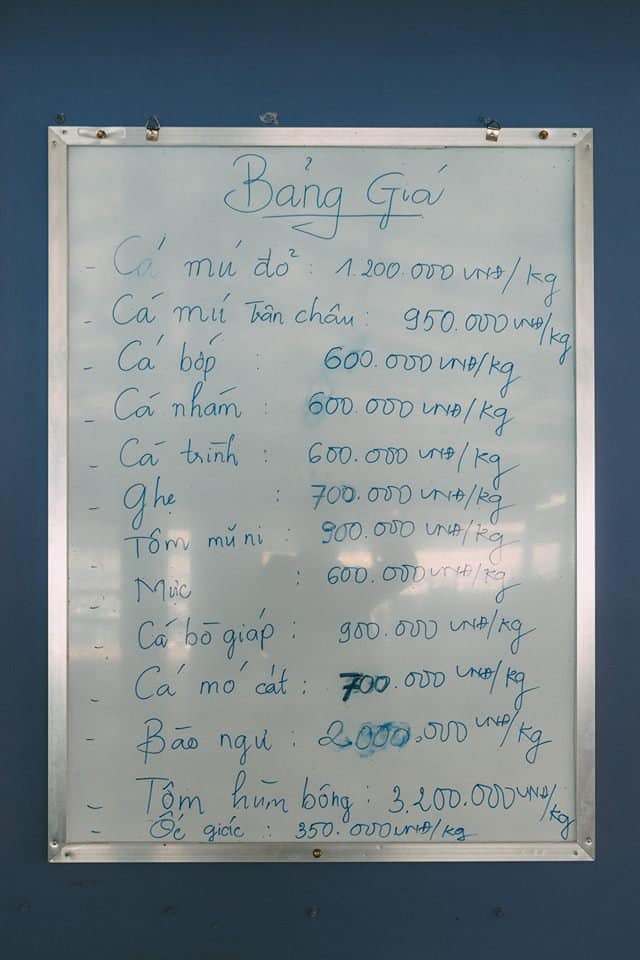 Bảng Giá
- Cá mú đỏ : 1.200.000 VNĐ/kg
- Cá mú Trân châu : 950.000 VNĐ/kg
- Cá bớp : 600.000 VNĐ/kg
- Cá nhám : 600.000 VNĐ/kg
- Cá trình : 600.000 VNĐ/kg
- Ghẹ : 700.000 VNĐ/kg
- Tôm mũ ni : 900.000 VNĐ/kg
- Mực : 600.000 VNĐ/kg
- Cá bò giáp : 900.000 VNĐ/kg
- Cá mó cát : 700.000 VNĐ/kg
- Bào ngư : 2.000.000 VNĐ/kg
- Tôm hùm bông : 3.200.000 VNĐ/kg
- Ốc giác : 350.000 VNĐ/kg